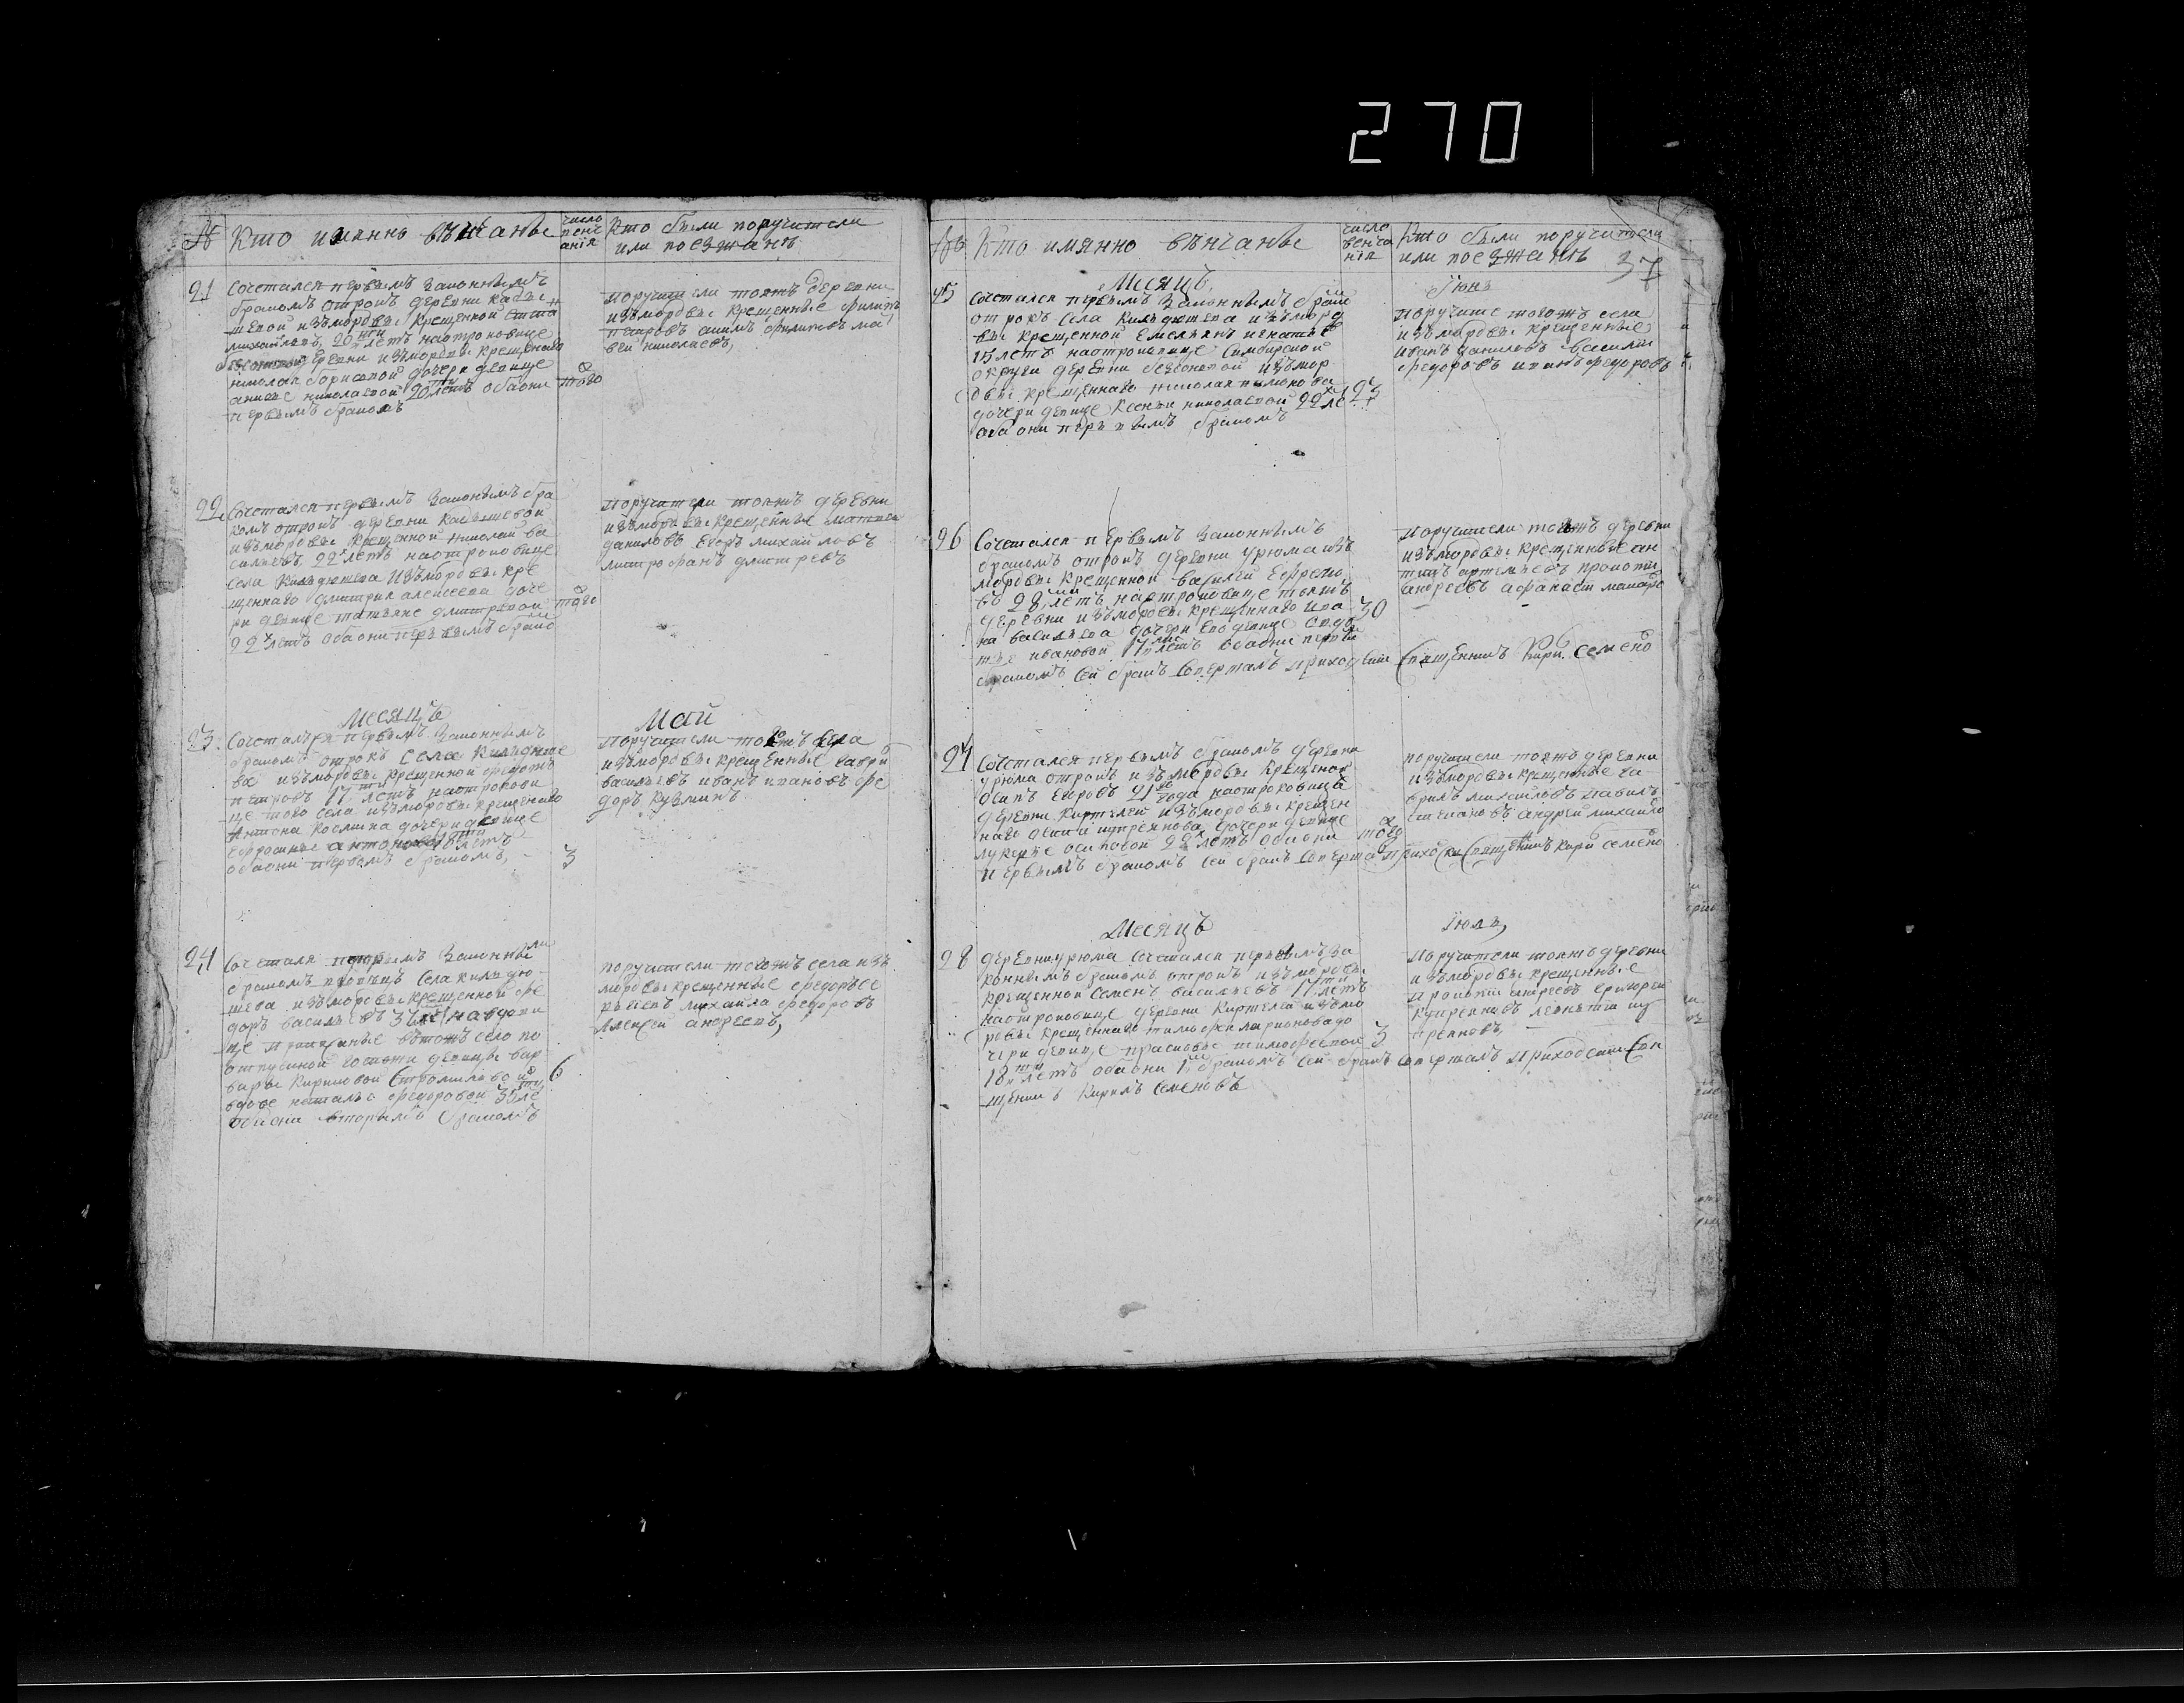 270
№ Кто имянно венчаные
число венчания
Кто были поручители
или поезжанѣ
21 Сочетался первымъ законнымъ
бракомъ отрокъ деревни
изъ мордвы крещенной
20 летъ наотроковице
деревни измордвы крещенаго
николая борисовой дочери девице
анисье николаевой 20 летъ обаони
первымъ бракомъ
того
поручители тоежъ деревни
измордвы крещенные филипъ
петровъ акимъ филиповъ мат
вей николаевъ,
22 Сочетался первымъ законнымъ бра
комъ отрокъ деревни кадышевой
измордвы крещенной николай ва
сильевъ 22 летъ наотроковице
села кильдюшева измордвы кре
щеннаго дмитрия алексеева доче
ри девице татьяне дмитревой
22 летъ обаони первымъ брако
того
поручители тоежъ деревни
измордвы крещенные матвей
даниловъ егоръ михайловъ
митрофанъ дмитревъ
Месяцъ Май
23 Сочетался первымъ законнымъ
бракомъ отрокъ села кильдюше
ва измордвы крещенной федотъ
петровъ 17 летъ наотрокови
це того села измордвы крещенаго
Антона космина дочери девице
ефросинье антоновой 18 летъ
обаони первымъ бракомъ,
3
Поручители тогожъ села
измордвы крещенные гаври
васильевъ иванъ ивановъ фе
доръ кузминъ
24 Сочетался вторымъ законны
бракомъ вдовецъ села кильдю
шева измордвы крещенной фе
доръ васильевъ 37 ле навдови
це вътожъ село по
отпускной госпожи девицы вар
вары кириловой
вдове наталье федоровой 35 ле
обаони вторымъ бракомъ
6
поручители тогожъ села изъ
мордвы крещенные федоръ се
михаила федоровъ
Алексей андреевъ,
№ Кто имянно венчаные
число венчания
Кто были поручители
или поезжанѣ
37
Месяцъ. Июнь
25 Сочетался первымъ законнымъ брако
отрокъ села кильдюшева измord
вы крещенной Емельянъ игнатьев
15 летъ наотроковице Симбирской
округи деревни безсоновой измор
двы крещеннаго николая
дочери девице ксеньи николаевой 22 ле
оба они первымъ бракомъ
23
поручите тогожъ села
измордвы крещенные
иванъ даниловъ василей
федоровъ иванъ федоровъ
26 Сочетался первымъ законнымъ
бракомъ отрокъ деревни урюма изъ
мордвы крещенной василей ефремо
въ 28 летъ наотроковице тоежъ
деревни измордвы крещеннаго ива
на васильева дочери ево девице
ивановой 17 летъ обаони первы
бракомъ сей бракъ совершалъ приходский священникъ Кири. семено
30
Поручители тоежъ деревни
измордвы крещенные ан
типъ артемьевъ прокопи
андреевъ афанасей макаро
27 Сочетался первымъ бракомъ деревни
урюма отрокъ измордвы крещеной
осипъ егоровъ 21 года наотроковице
деревни киртелей измордвы крещен
наго осипа дочери девице
лукерье осиповой 22 летъ обаони
первымъ бракомъ сей бракъ соверша приходски священникъ кири семено
того
поручители тоежъ деревни
измордвы крещенные га
врилъ михайловъ павилъ
степановъ андрей михайло
Месяцъ Июль,
28 Деревни урюма сочетался первымъ за
коннымъ бракомъ отрокъ измордвы
крещенной Семенъ васильевъ 17 летъ
наотроковице деревни киртелей измо
рдвы крещеннаго тимофея ларионова до
чери девице прасковье тимофеевой
18 летъ обаони 1 бракомъ сей бракъ совершалъ приходский свя
щенникъ Кирилъ Семеновъ
3
Поручители тоежъ деревни
измордвы крещенные
прокопий андреевъ григорей
леонтий